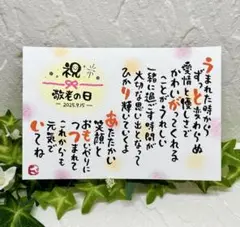 祝
敬老の日
2025.9.15
うまれた時から
ずっと変わらぬ
愛情と優しさで
かわいがってくれる
ことがうれしい
一緒に過ごす時間が
大切な思い出となって
ひかり輝いていくよ
あたたかい
笑顔と
おもいやりに
つつまれて
これからも
元気で
いてね